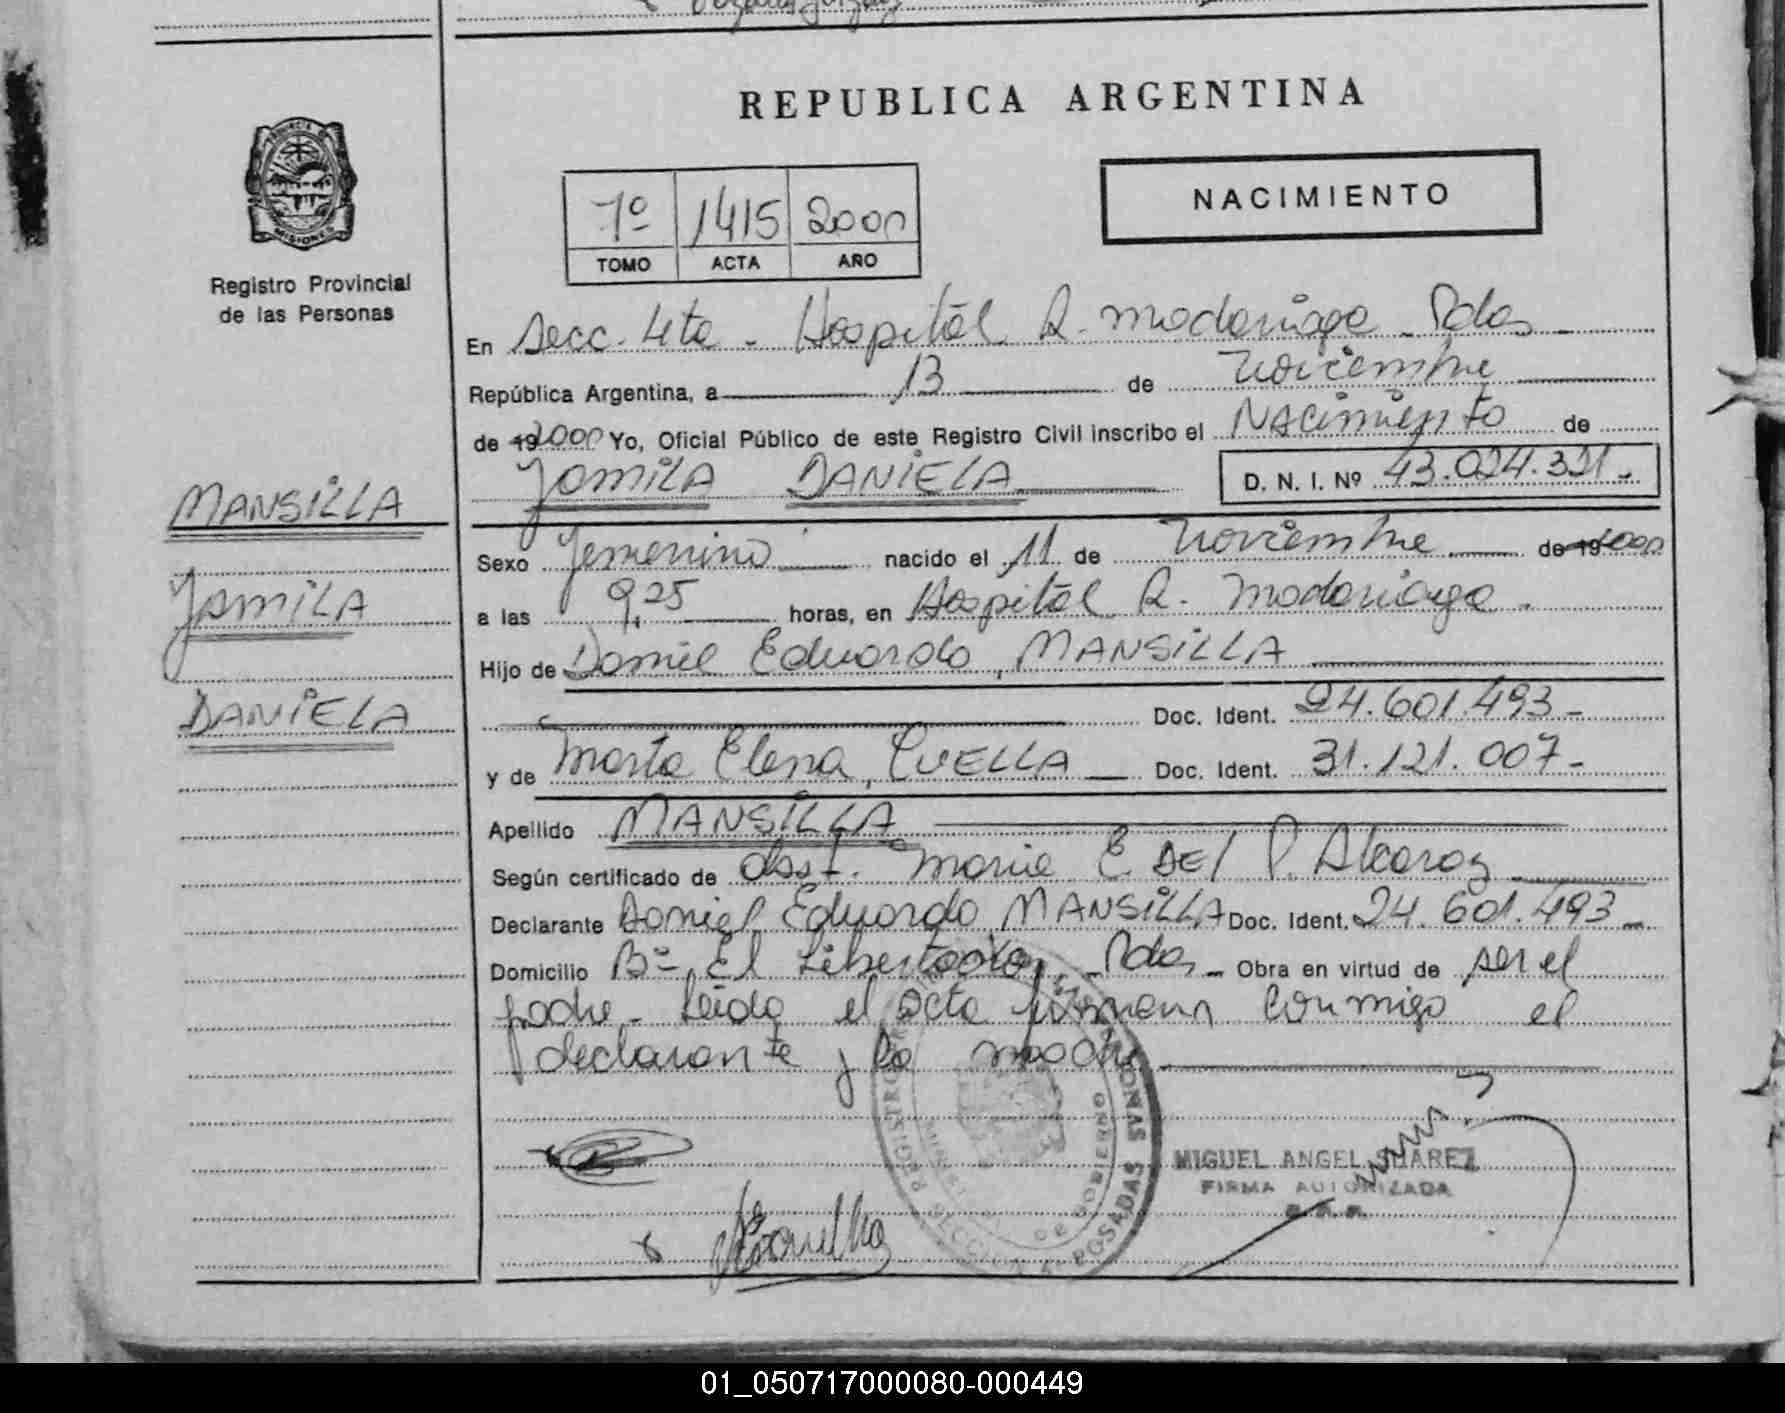 REPUBLICA ARGENTINA
PROVINCIA DE
MISIONES
Registro Provincial
de las Personas
NACIMIENTO
7º 1415 2000
TOMO ACTA AÑO
En Secc. 4ta - Hospital R. Madariaga - Pdas -
República Argentina, a 13 de Noviembre
de 19 2000 Yo, Oficial Público de este Registro Civil inscribo el Nacimiento de
Yamila DANIELA D. N. I. Nº 43.024.321 -
MANSILLA
Yamila
DANIELA
Sexo Femenino nacido el 11 de Noviembre de 19 2000
a las 9,25 horas, en Hospital R. Madariaga -
Hijo de Daniel Eduardo, MANSILLA
Doc. Ident. 24.601.493 -
y de Marta Elena, CUELLA Doc. Ident. 31.121.007 -
Apellido MANSILLA
Según certificado de Obst. Maria E. DEL P. Alcaraz
Declarante Daniel Eduardo MANSILLA Doc. Ident. 24.601.493 -
Domicilio Bº El Libertador, Pdas - Obra en virtud de ser el
padre - Leida el acta firman conmigo el
declarante y la madre
REGISTRO PERSONAS
MINISTERIO DE GOBIERNO
SECCION 4ª POSADAS
MIGUEL ANGEL SUAREZ
FIRMA AUTORIZADA
01_050717000080-000449